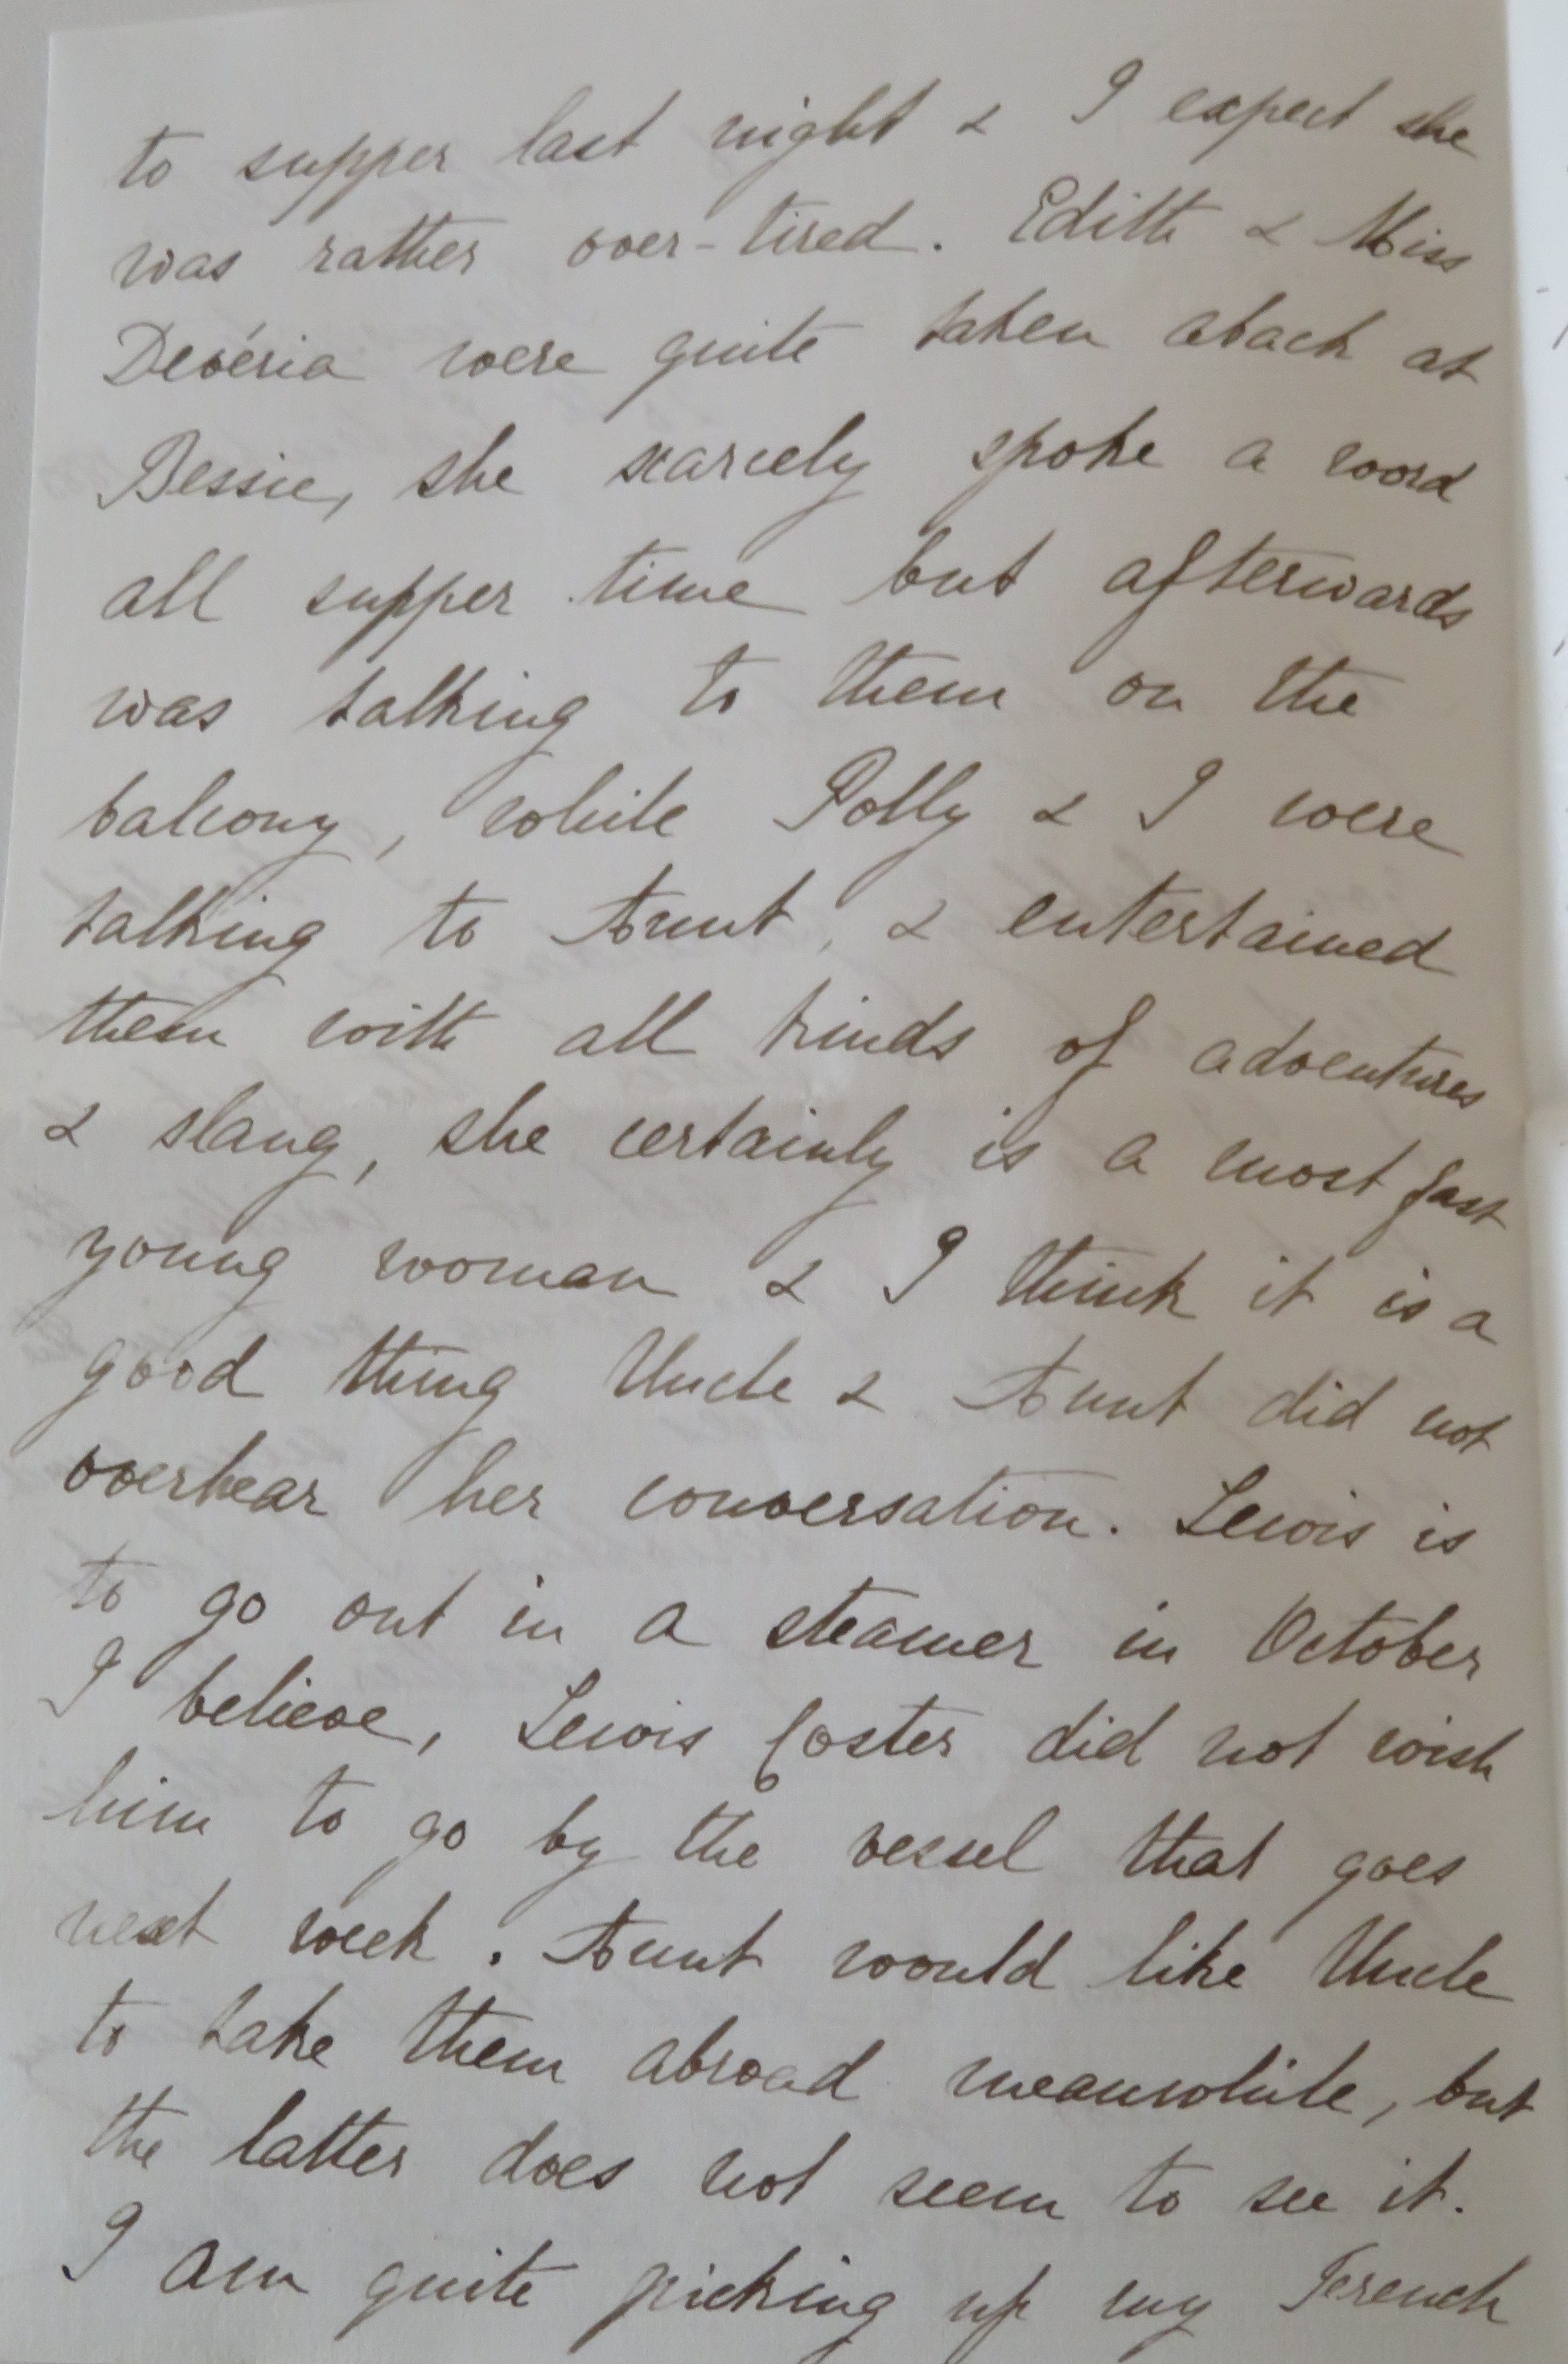 to supper last night & I expect she
was rather over-tired. Edith & Miss
Devéria were quite taken aback at
Bessie, she scarcely spoke a word
all supper time but afterwards
was talking to them on the
balcony, while Polly & I were
talking to Aunt, & entertained
them with all kinds of adventures
& slang, she certainly is a most fast
young woman & I think it is a
good thing Uncle & Aunt did not
overhear her conversation. Lewis is
to go out in a steamer in October
I believe, Lewis Coster did not wish
him to go by the vessel that goes
next week. Aunt would like Uncle
to take them abroad meanwhile, but
the latter does not seem to see it.
I am quite picking up my French